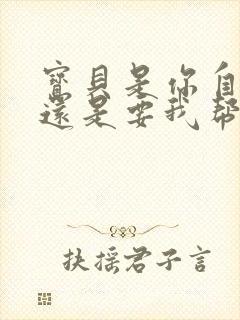 寶貝是你自
還是要我幫
扶摇君子言